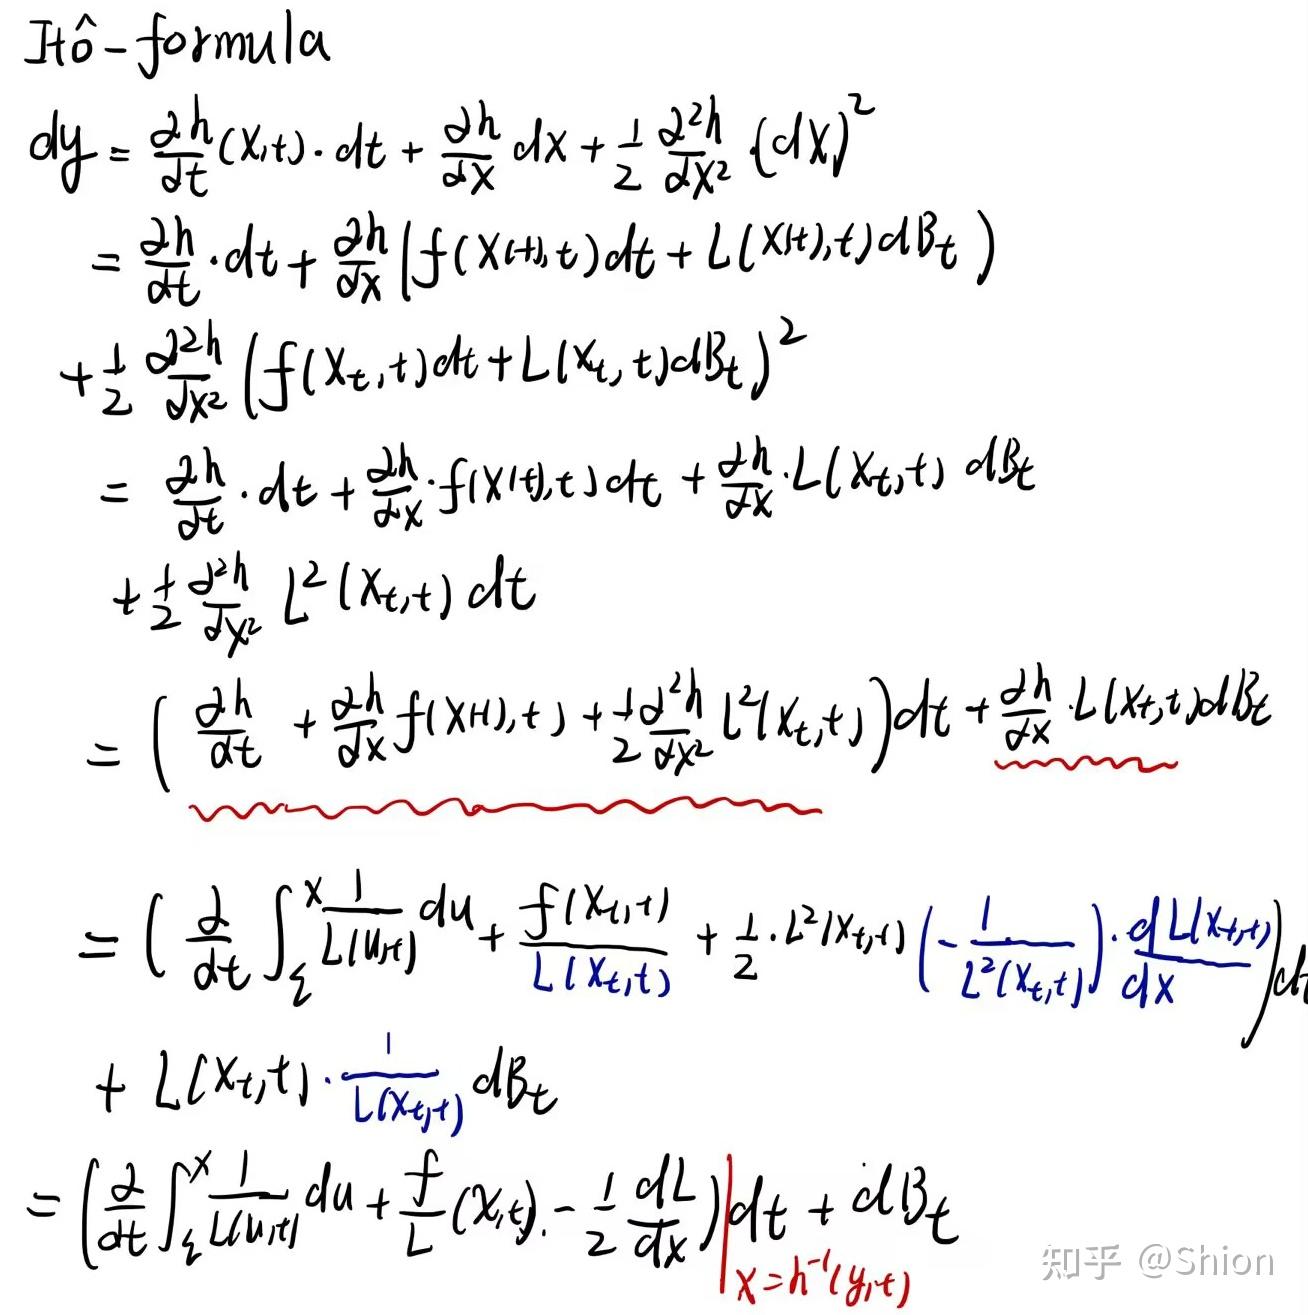 Itô-formula
dy = ∂h/∂t (x,t)·dt + ∂h/∂x dx + 1/2 ∂²h/∂x² ·(dx)²
= ∂h/∂t ·dt + ∂h/∂x (f(x(t),t)dt + L(x(t),t)dB_t)
+ 1/2 ∂²h/∂x² (f(x_t,t)dt + L(x_t,t)dB_t)²
= ∂h/∂t ·dt + ∂h/∂x ·f(x(t),t)dt + ∂h/∂x ·L(x_t,t) dB_t
+ 1/2 ∂²h/∂x² L²(x_t,t) dt
= (∂h/∂t + ∂h/∂x f(x(t),t) + 1/2 ∂²h/∂x² L²(x_t,t))dt + ∂h/∂x ·L(x_t,t)dB_t
= (∂/∂t ∫_ξ^x 1/L(u,t) du + f(x_t,t)/L(x_t,t) + 1/2 ·L²(x_t,t) (-1/L²(x_t,t))·dL(x_t,t)/dx)dt
+ L(x_t,t)·1/L(x_t,t) dB_t
= (∂/∂t ∫_ξ^x 1/L(u,t) du + f/L (x,t) - 1/2 dL/dx)|dt + dB_t
x=h⁻¹(y,t)
知乎 @Shion